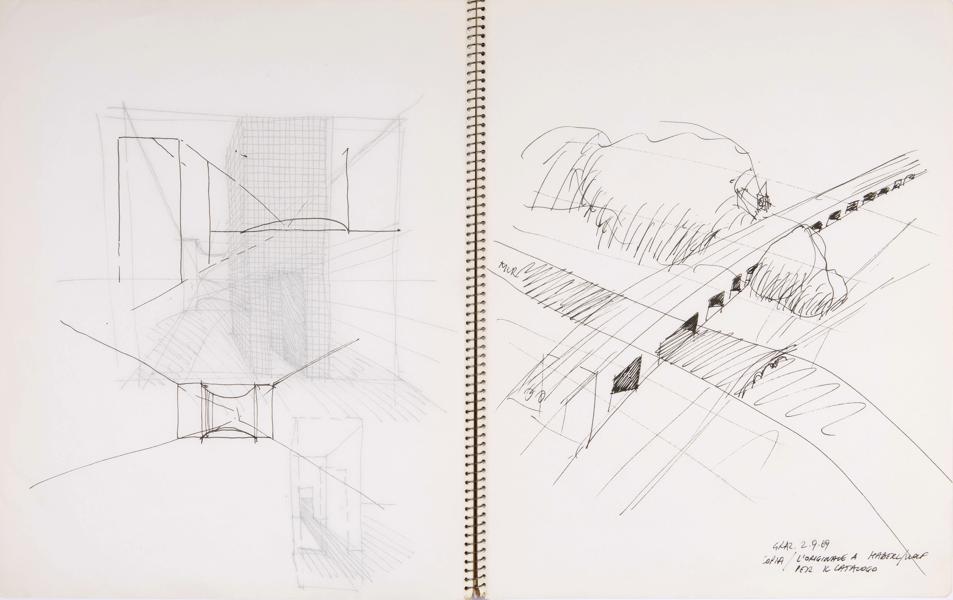 MUR
GRAZ. 2.9.89
COPIA / L'ORIGINALE A HABERL/WOLF
PER IL CATALOGO